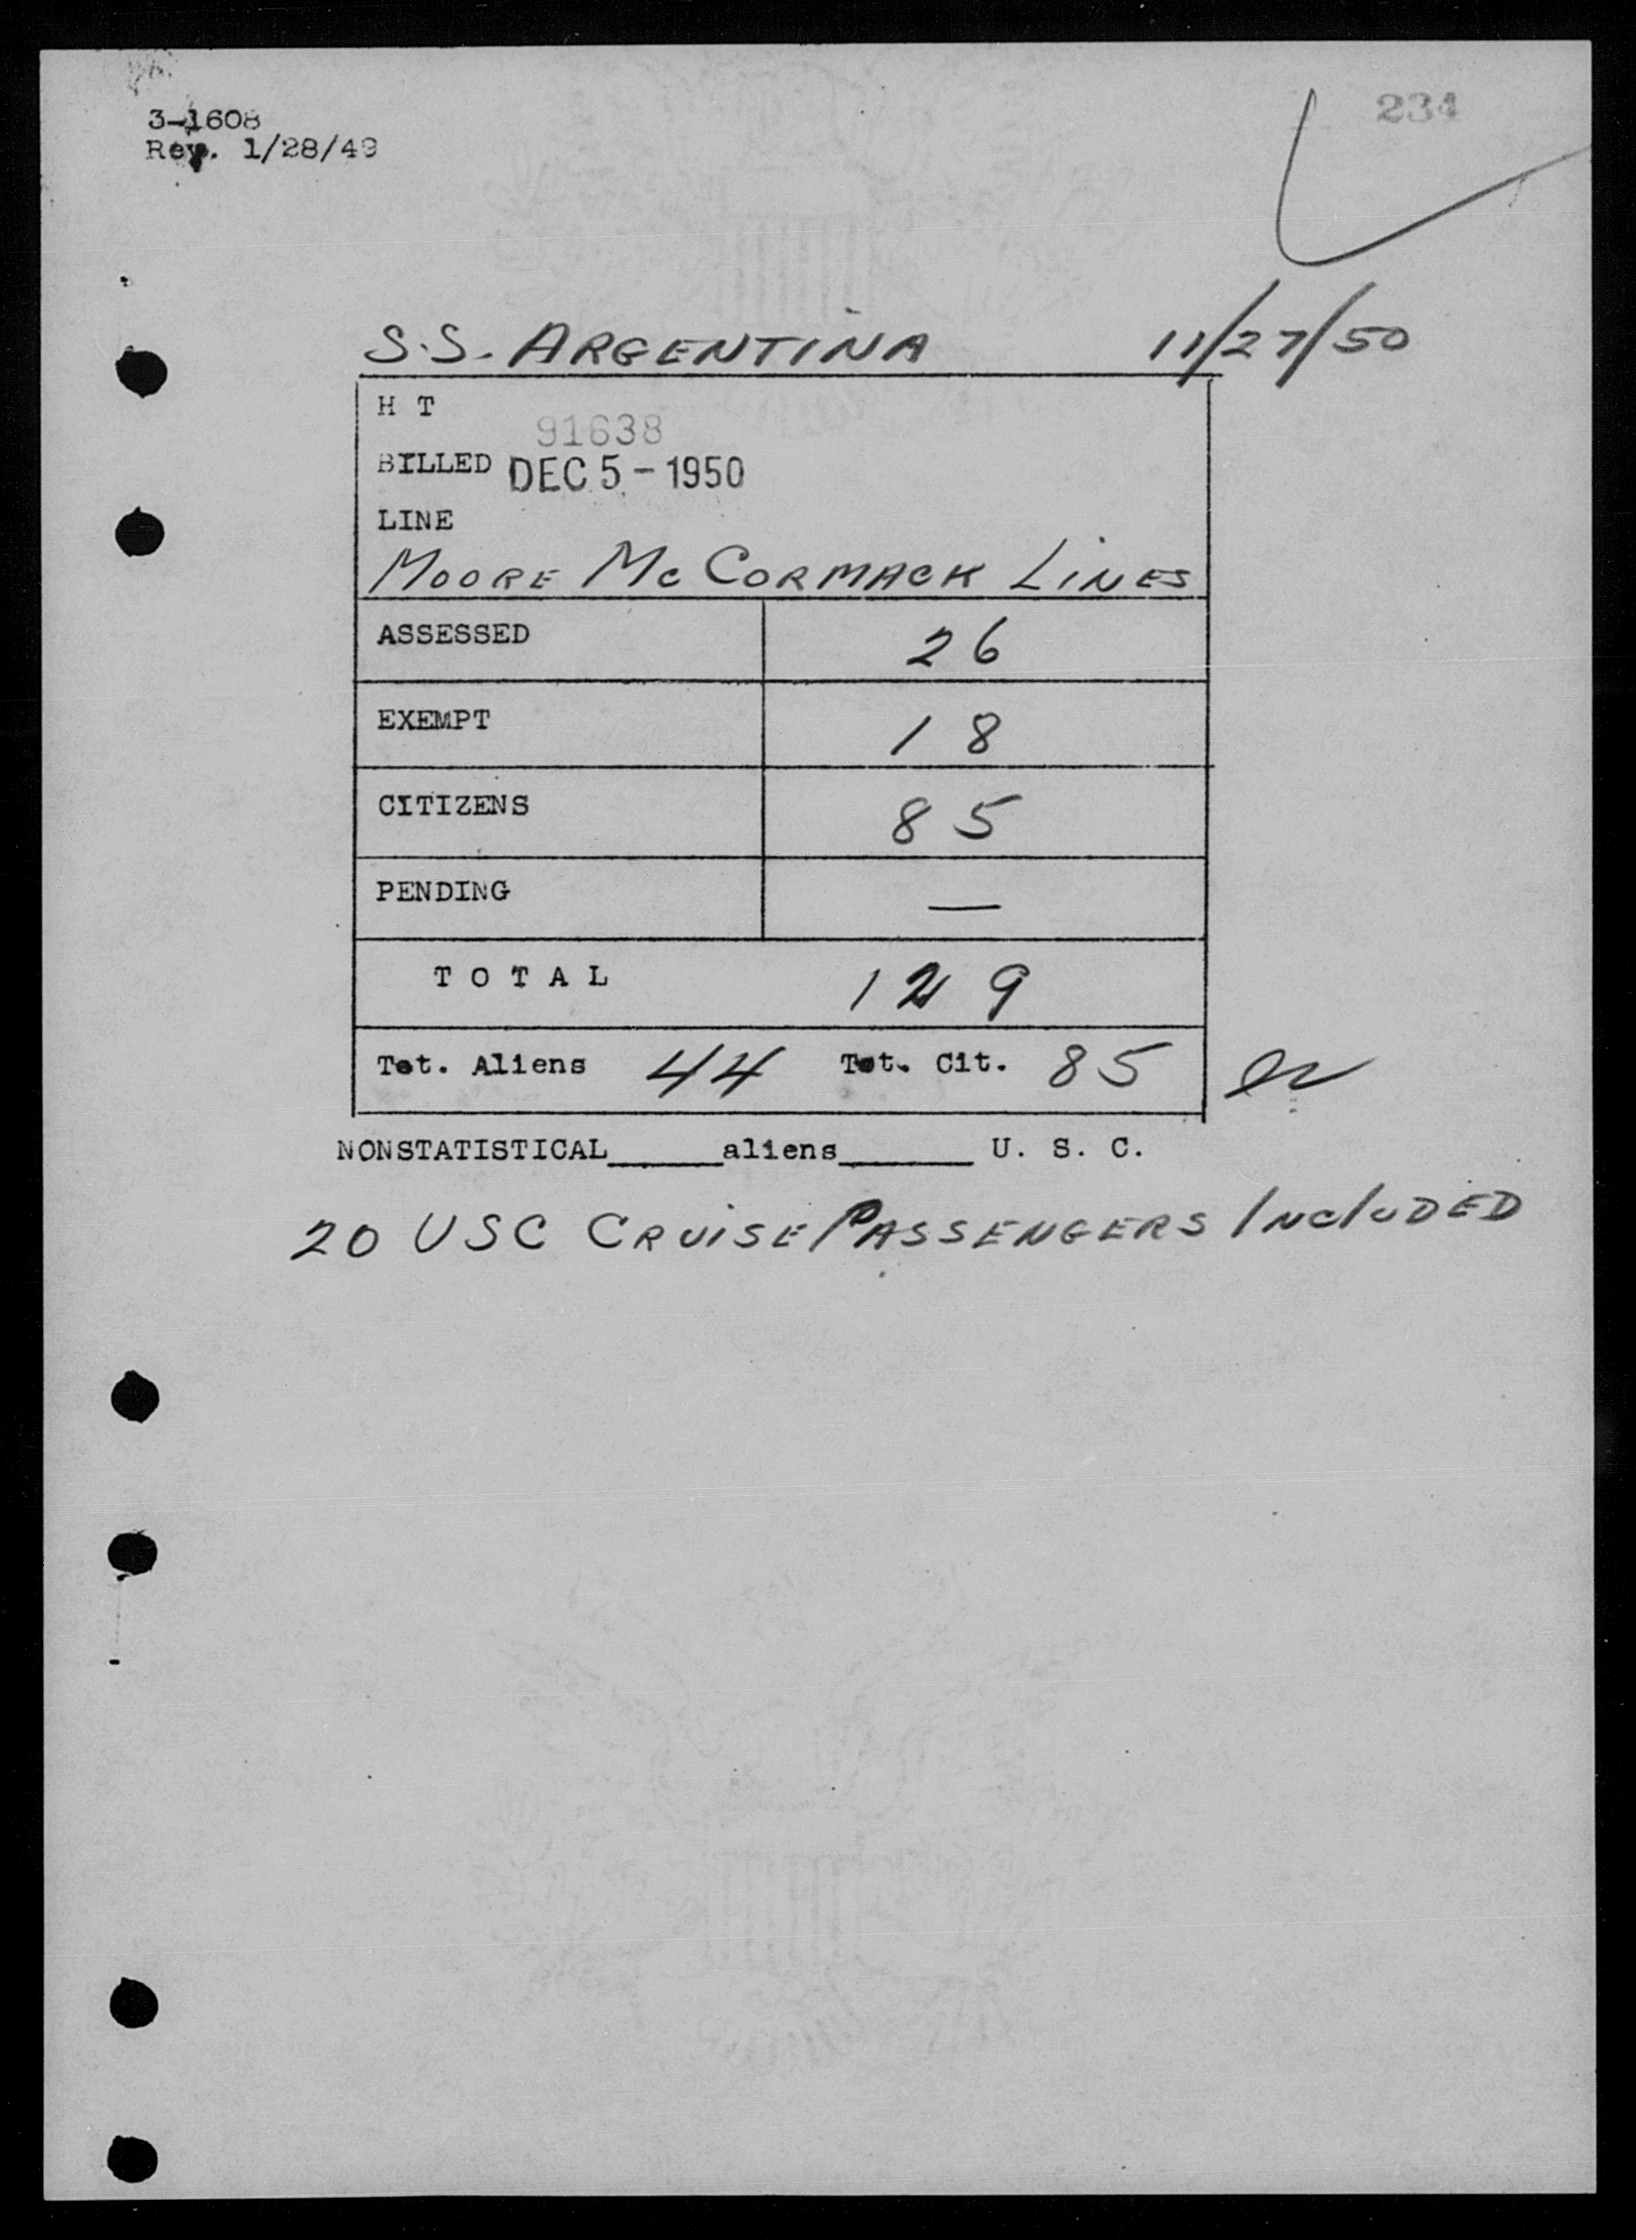 234
3-1608
Rev. 1/28/49
S.S. ARGENTINA 11/27/50
H T
91638
BILLED DEC 5 - 1950
LINE
MOORE MCCORMACK LINES
ASSESSED 26
EXEMPT 18
CITIZENS 85
PENDING —
T O T A L 129
Tot. Aliens 44 Tot. Cit. 85
NONSTATISTICAL______aliens_______ U. S. C.
20 USC CRUISE PASSENGERS INCLUDED